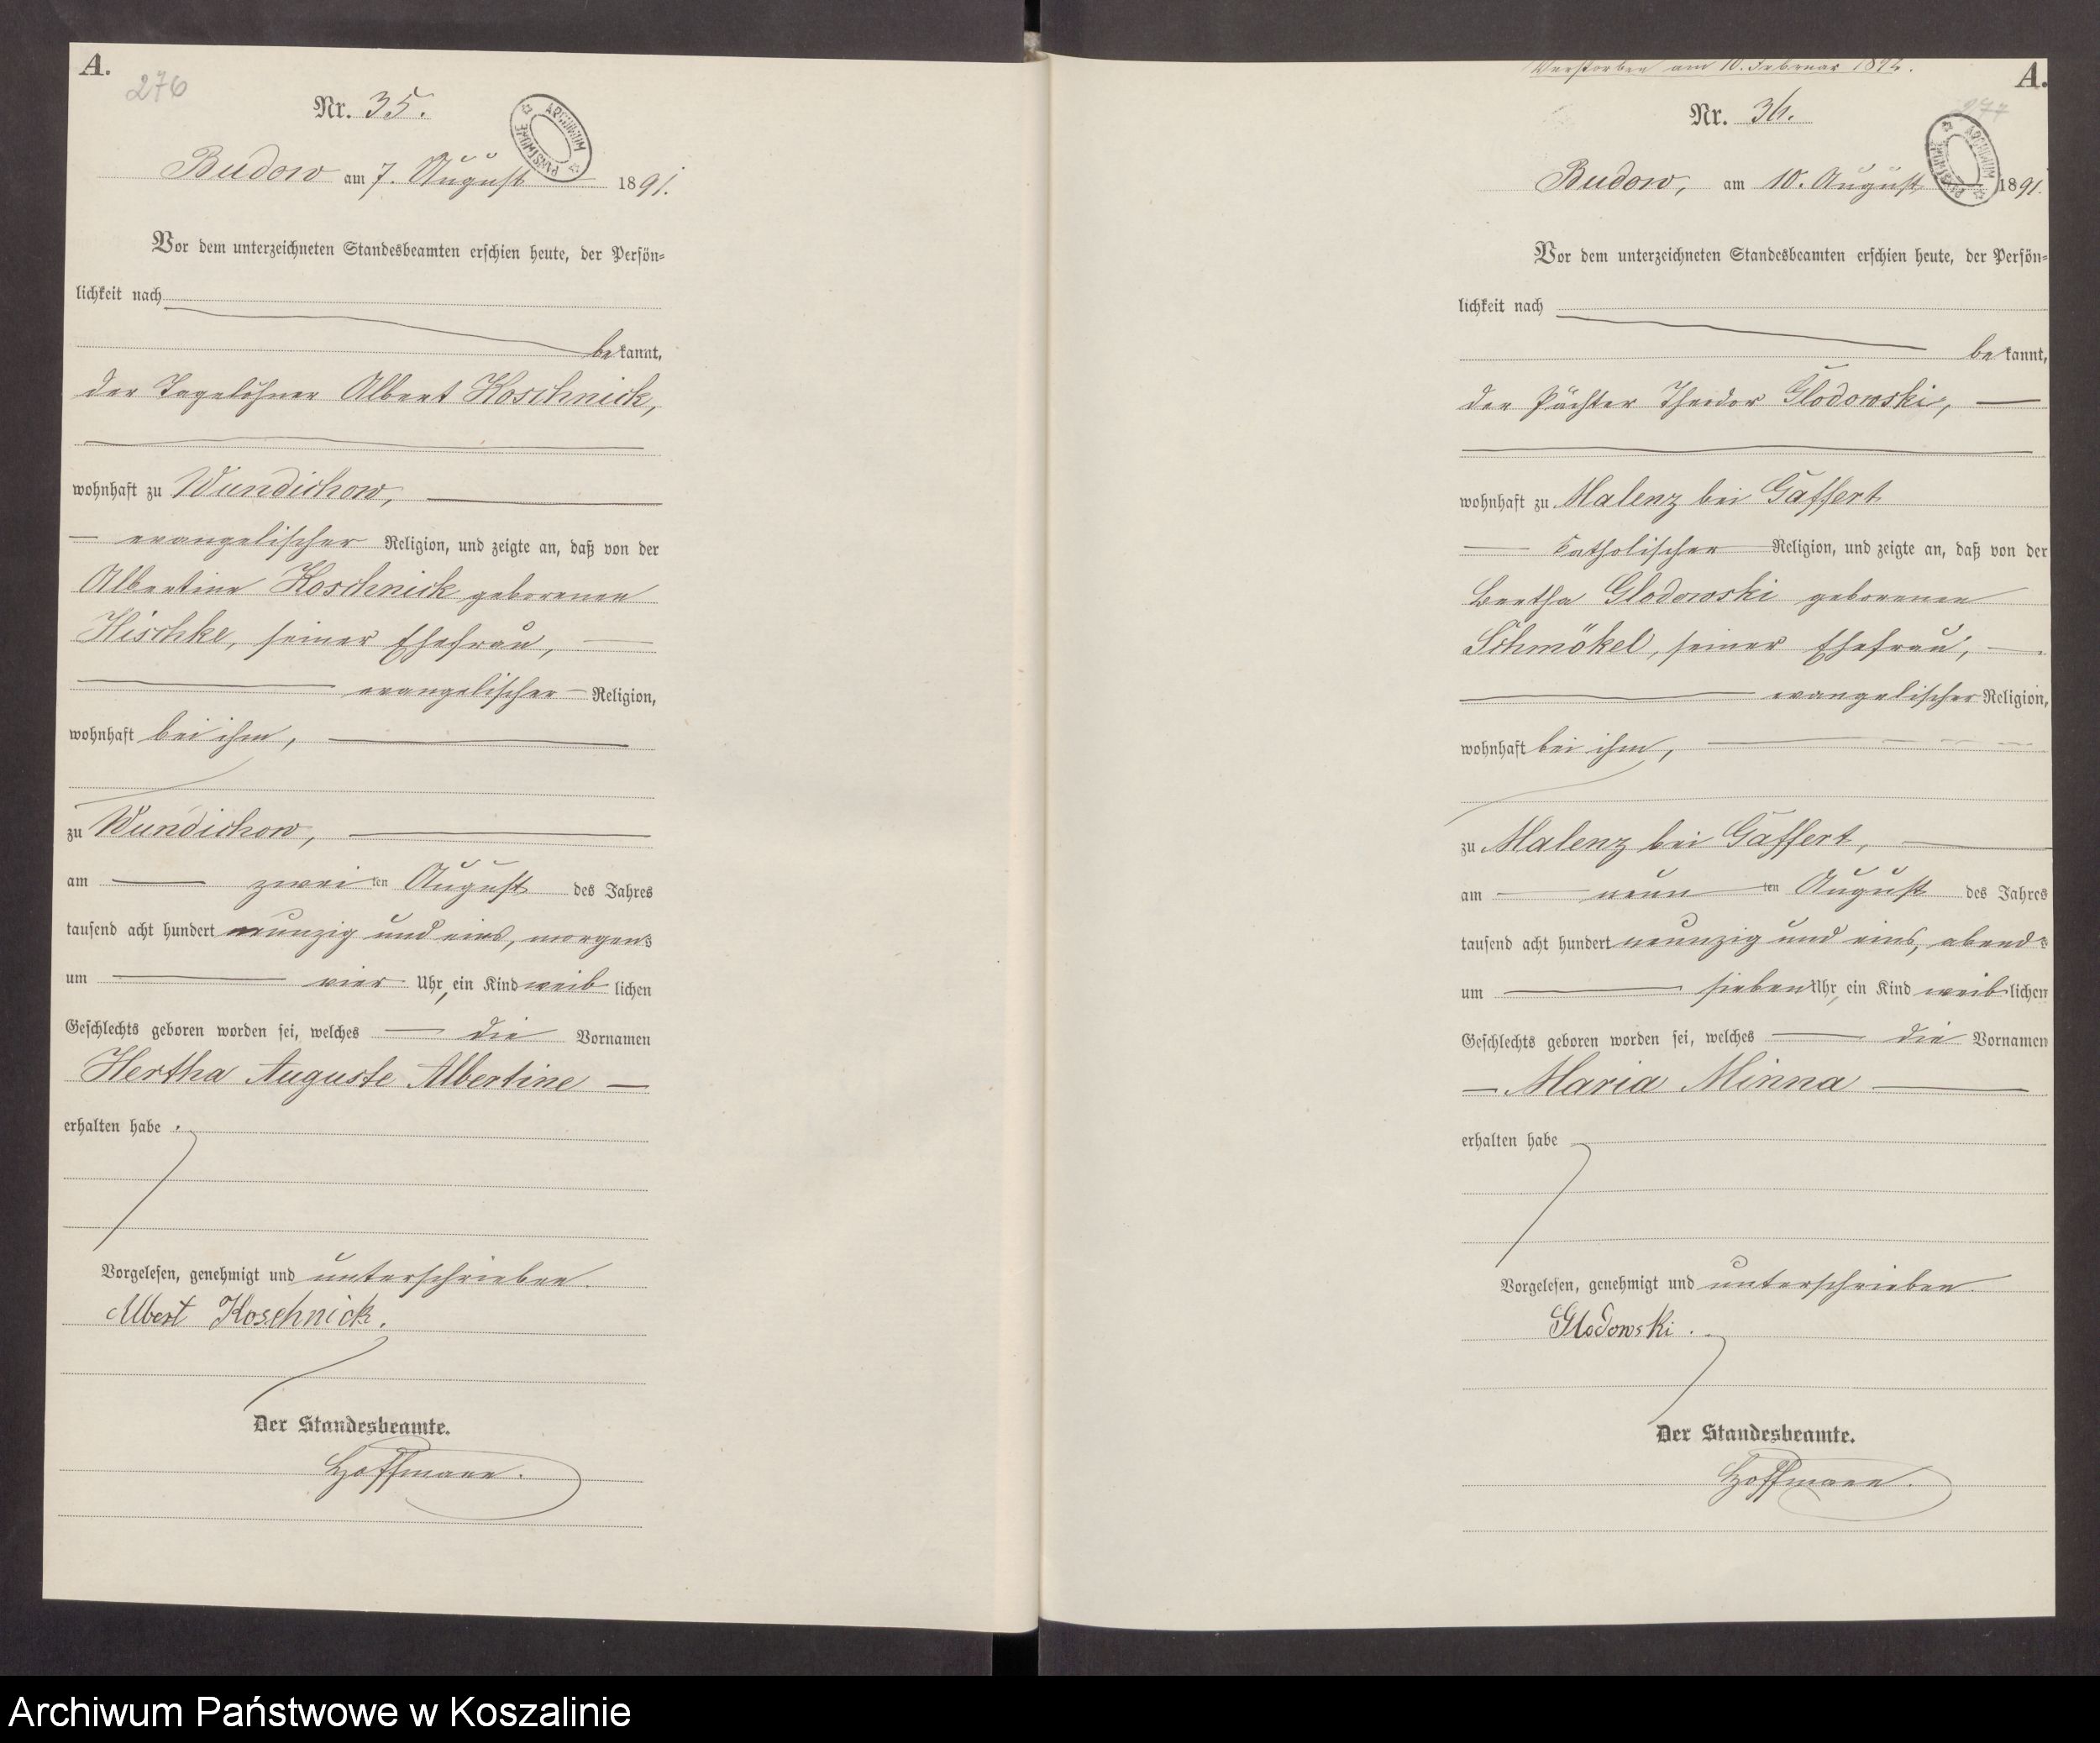 A.
276
Nr. 35.
ARCHIWUM PAŃSTWOWE
Budow am 7. August 1891.
Vor dem unterzeichneten Standesbeamten erschien heute, der Persön-
lichkeit nach
be kannt,
der Tagelöhner Albert Koschnick,
wohnhaft zu Wundichow,
evangelischer Religion, und zeigte an, daß von der
Albertine Koschnick geborenen
Hischke, seiner Ehefrau,
evangelischer Religion,
wohnhaft bei ihm,
zu Wundichow,
am zwei ten August des Jahres
tausend acht hundert neunzig und eins, morgens
um vier Uhr, ein Kind weib lichen
Geschlechts geboren worden sei, welches die Vornamen
Hertha Auguste Albertine
erhalten habe.
Vorgelesen, genehmigt und unterschrieben.
Albert Koschnick.
Der Standesbeamte.
Hoffmann.
Verstorben am 10. Februar 1892.
A.
277
Nr. 36.
ARCHIWUM PAŃSTWOWE
Budow, am 10. August 1891.
Vor dem unterzeichneten Standesbeamten erschien heute, der Persön-
lichkeit nach
be kannt,
der Pächter Theodor Glodowski,
wohnhaft zu Malenz bei Gaffert
katholischer Religion, und zeigte an, daß von der
Bertha Glodowski geborenen
Schmökel, seiner Ehefrau,
evangelischer Religion,
wohnhaft bei ihm,
zu Malenz bei Gaffert,
am neun ten August des Jahres
tausend acht hundert neunzig und eins, abends
um sieben Uhr, ein Kind weib lichen
Geschlechts geboren worden sei, welches die Vornamen
Maria Minna
erhalten habe
Vorgelesen, genehmigt und unterschrieben
Glodowski.
Der Standesbeamte.
Hoffmann.
Archiwum Państwowe w Koszalinie